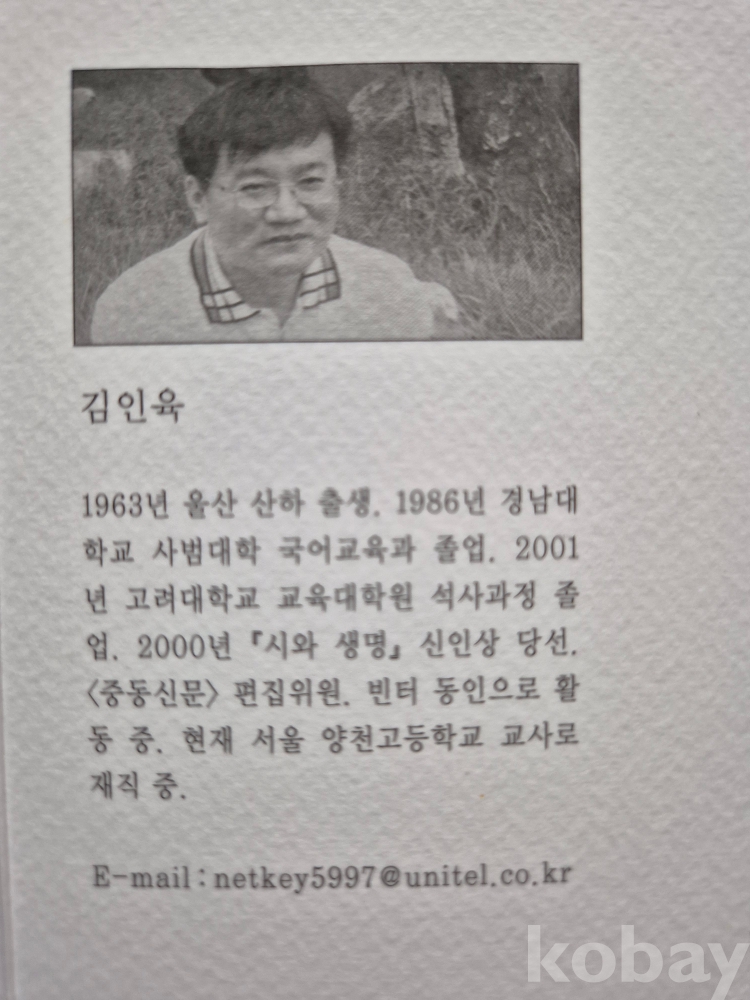 김인육
1963년 울산 산하 출생. 1986년 경남대
학교 사범대학 국어교육과 졸업. 2001
년 고려대학교 교육대학원 석사과정 졸
업. 2000년 『시와 생명』 신인상 당선.
〈중동신문〉 편집위원. 빈터 동인으로 활
동 중. 현재 서울 양천고등학교 교사로
재직 중.
E-mail : netkey5997@unitel.co.kr
kobay